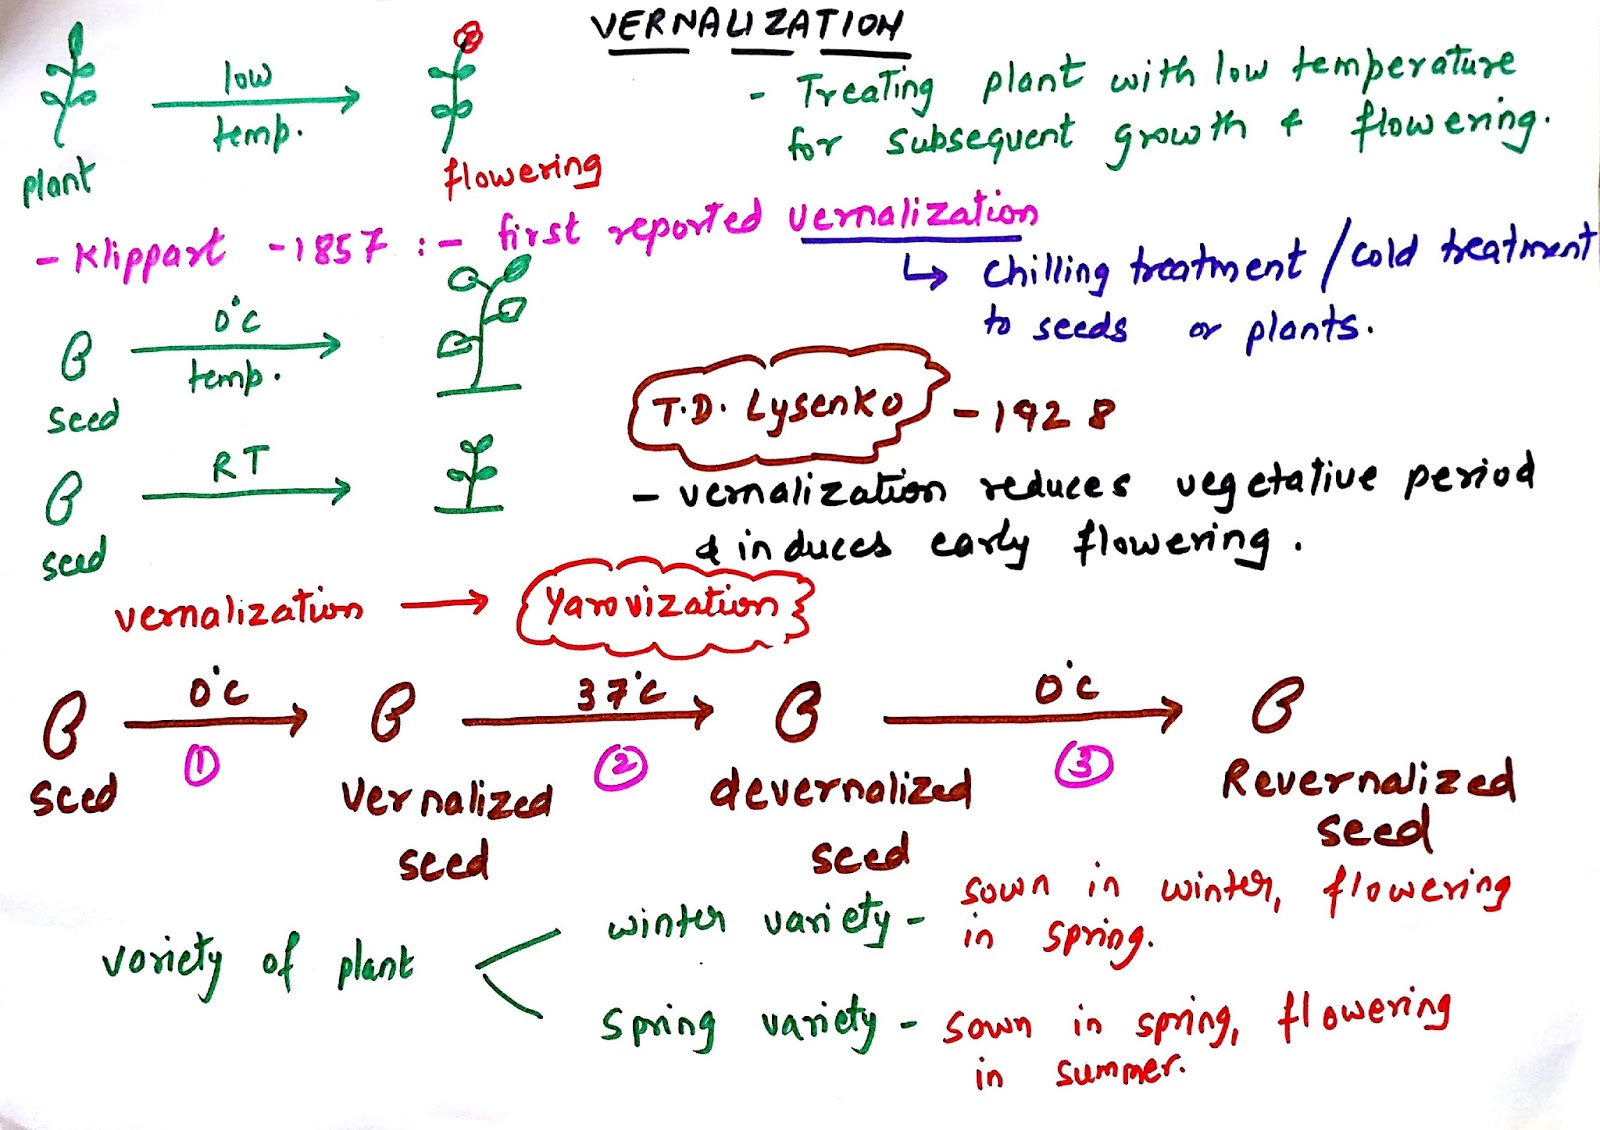 VERNALIZATION
low
temp.
plant
flowering
- Treating plant with low temperature
for subsequent growth & flowering.
- Klippart - 1857 :- first reported vernalization
↳ chilling treatment / cold treatment
to seeds or plants.
0°C
temp.
seed
T.D. Lysenko - 1928
RT
seed
- vernalization reduces vegetative period
& induces early flowering.
vernalization → Yarovization
0°C 37°C 0°C
① ② ③
seed vernalized devernalized Revernalized
seed seed seed
variety of plant
winter variety - sown in winter, flowering
in spring.
spring variety - sown in spring, flowering
in summer.